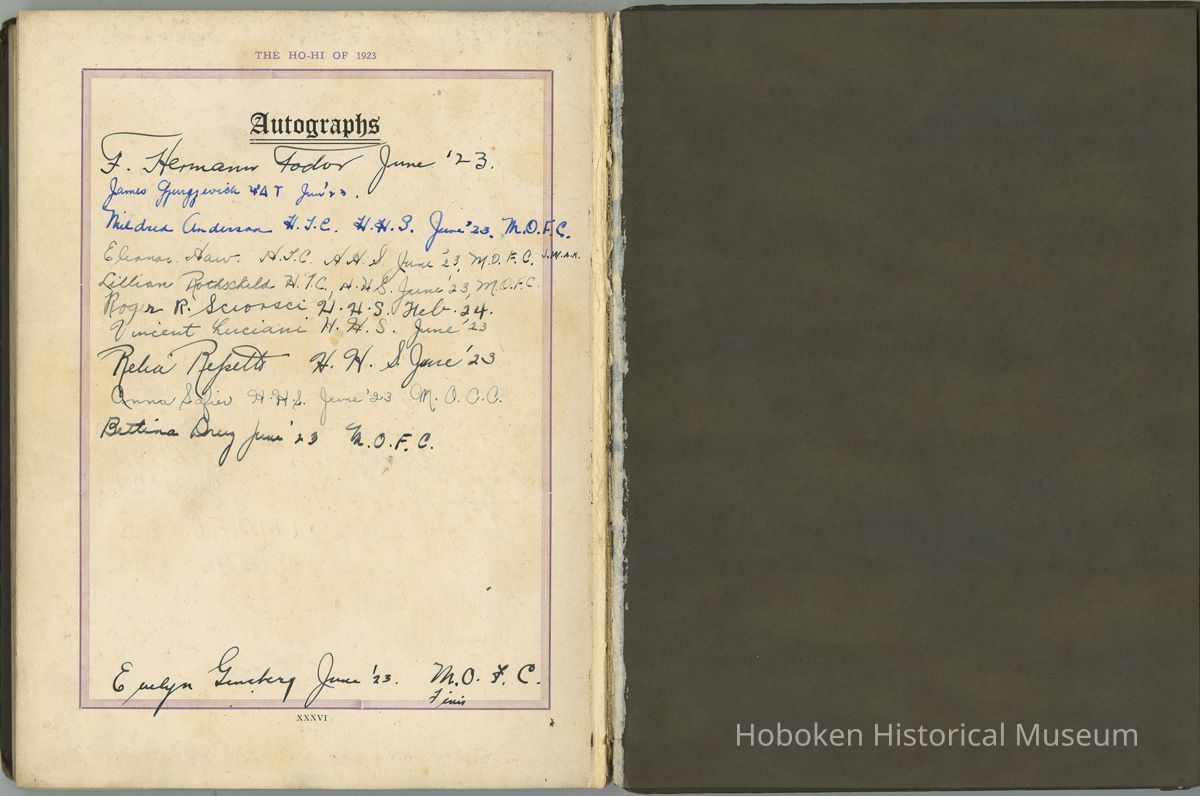 THE HO-HI OF 1923
Autographs
F. Hermann Fodor June '23.
James ΨΔΤ Jun '23.
Mildred Anderson H.T.C. H.H.S. June '23. M.O.F.C.
Eleonor Haw. H.T.C. H.H.S June '23, M.O.F.C.
Lillian Rothschild H.T.C., H.H.S. June '23 M.O.F.C.
Roger R. Sciorsci H.H.S. Feb. '24.
Vincent Luciani H.H.S. June '23
Relia Repetti H.H.S. June '23
Anna Safier H.H.S. June '23 M.O.C.C.
Bettina June '23 M.O.F.C.
Evelyn Ginsberg June '23. M.O.F.C.
Finis
XXXVI
Hoboken Historical Museum